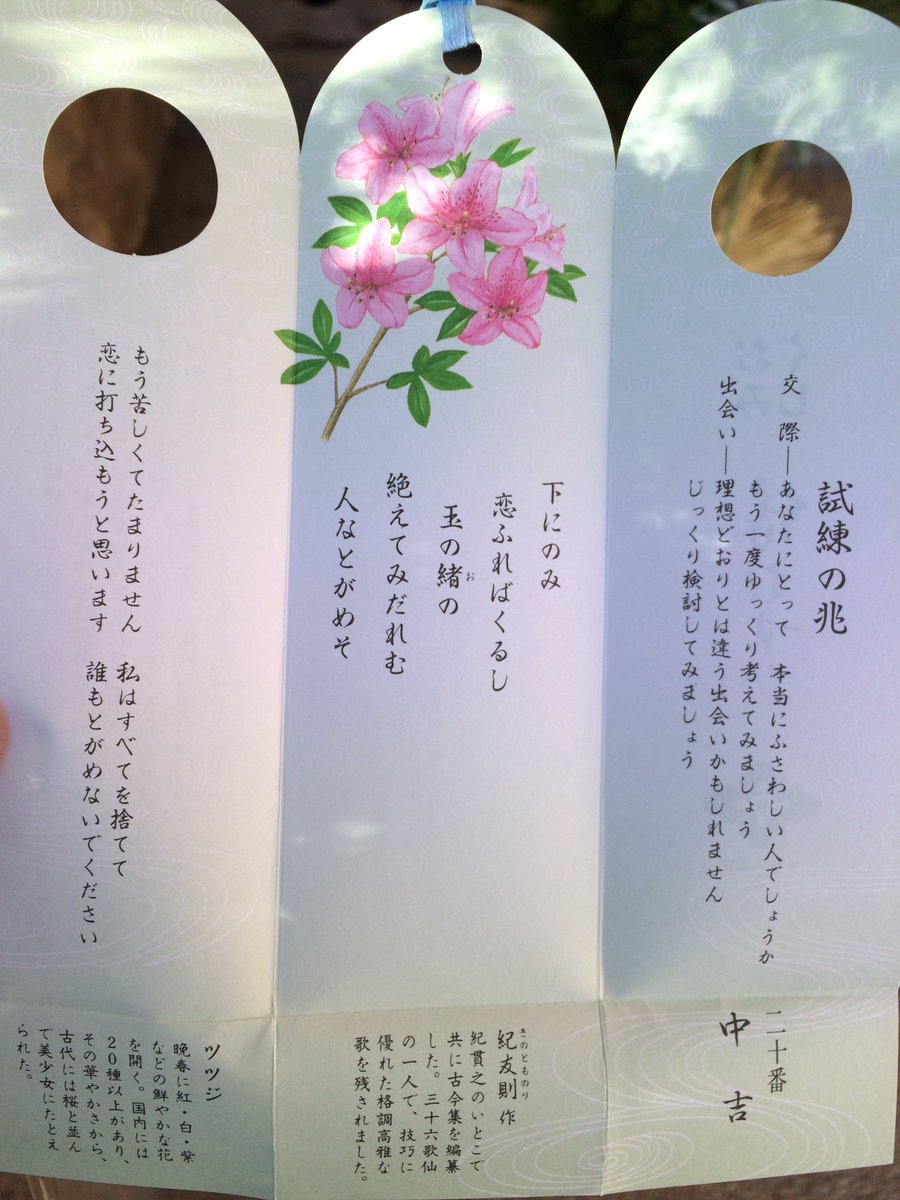 試練の兆
交際―あなたにとって 本当にふさわしい人でしょうか
もう一度ゆっくり考えてみましょう
出会い―理想どおりとは違う出会いかもしれません
じっくり検討してみましょう
二十番
中吉
下にのみ
恋ふればくるし
玉の緒の
お
絶えてみだれむ
人なとがめそ
きのとものり
紀友則 作
紀貫之のいとこで
共に古今集を編纂
した。三十六歌仙
の一人で、技巧に
優れた格調高雅な
歌を残されました。
もう苦しくてたまりません 私はすべてを捨てて
恋に打ち込もうと思います 誰もとがめないでください
ツツジ
晩春に紅・白・紫
などの鮮やかな花
を開く。国内には
20種以上があり、
その華やかさから、
古代には桜と並ん
で美少女にたとえ
られた。